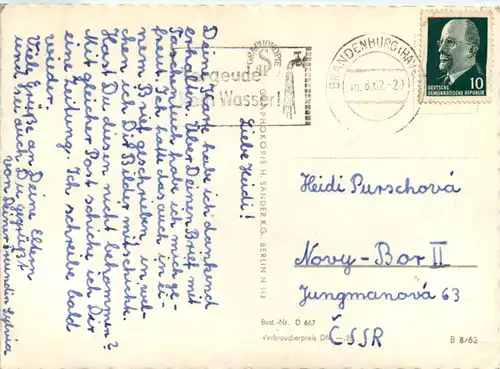 Liebe Heidi!
Deine Karte habe ich dankend
erhalten. Über Deinen Brief mit
Taschentuch habe ich mich ge-
freut. Ich hatte das auch in ei-
nem Brief geschrieben, in wel-
chen ich Dir Bilder mitschickte.
Hast Du diesen nicht bekommen?
Mit gleicher Post schicke ich Dir
eine Zeitung. Ich schreibe bald
wieder.
Viele Grüße an Deine Eltern
und sei auch Du gegrüßt
von Deiner Freundin Sylvia
geude
Wasser!
BRANDENBURG (HAV
.8.62.-2
DEUTSCHE
DEMOKRATISCHE REPUBLIK
10
GRAPHOKOPIE H. SANDER KG., BERLIN N 113
Heidi Purschová
Novy-Bor II
Jungmanová 63
ČSSR
Best.-Nr. D 667
Verbraucherpreis DM
B 8/62